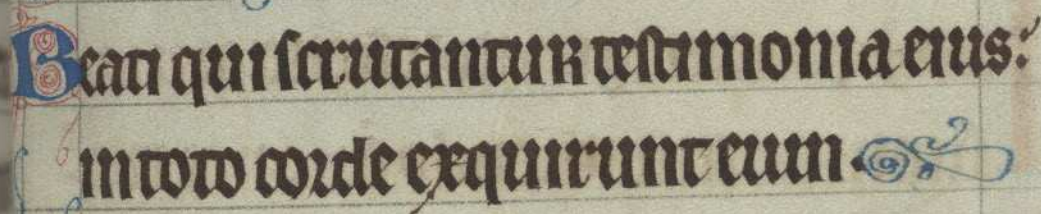 Beati qui scrutantur testimonia eius:
in toto corde exquirunt eum.